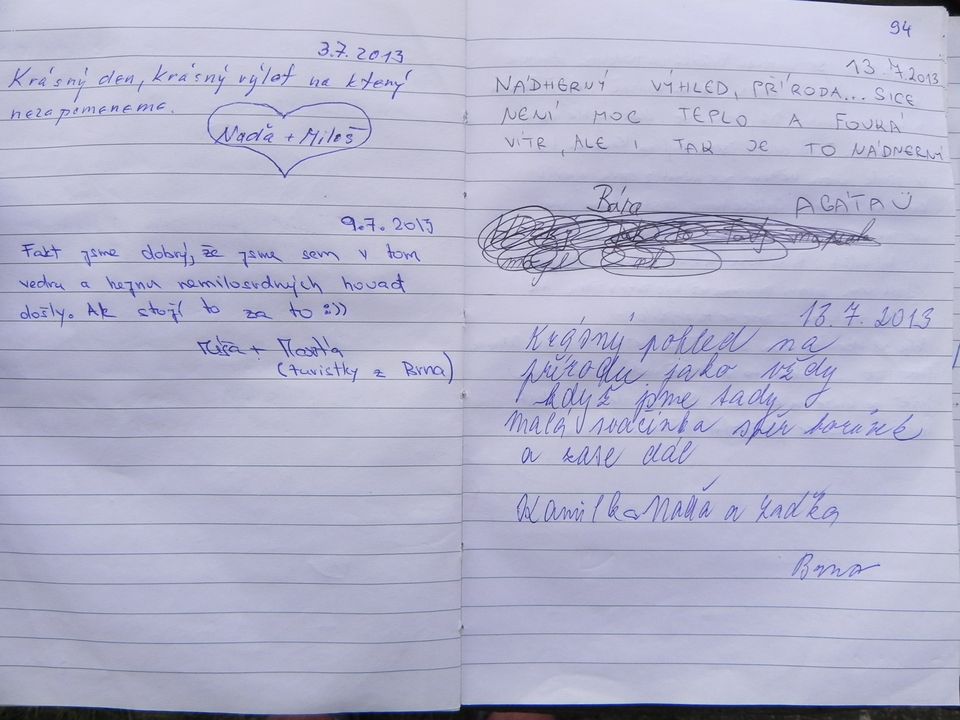 3.7.2013
Krásný den, krásný výlet na který
nezapomeneme.
Naďa + Miloš
9.7.2013
Fakt jsme dobrý, že jsme sem v tom
vedru a hejnu nemilosrdných hovad
došly. Ak stojí to za to :))
Míša + Marta
(turistky z Brna)
94
13.7.2013
NÁDHERNÝ VÝHLED, PŘÍRODA... SICE
NENÍ MOC TEPLO A FOUKÁ
VÍTR, ALE I TAK JE TO NÁDHERNÝ
Bára AGÁTA
13.7.2013
Krásný pohled na
přírodu jako vždy
když jsme tady
malá svačinka
a zase dál
Kamilka Naďa a Radka
Brno